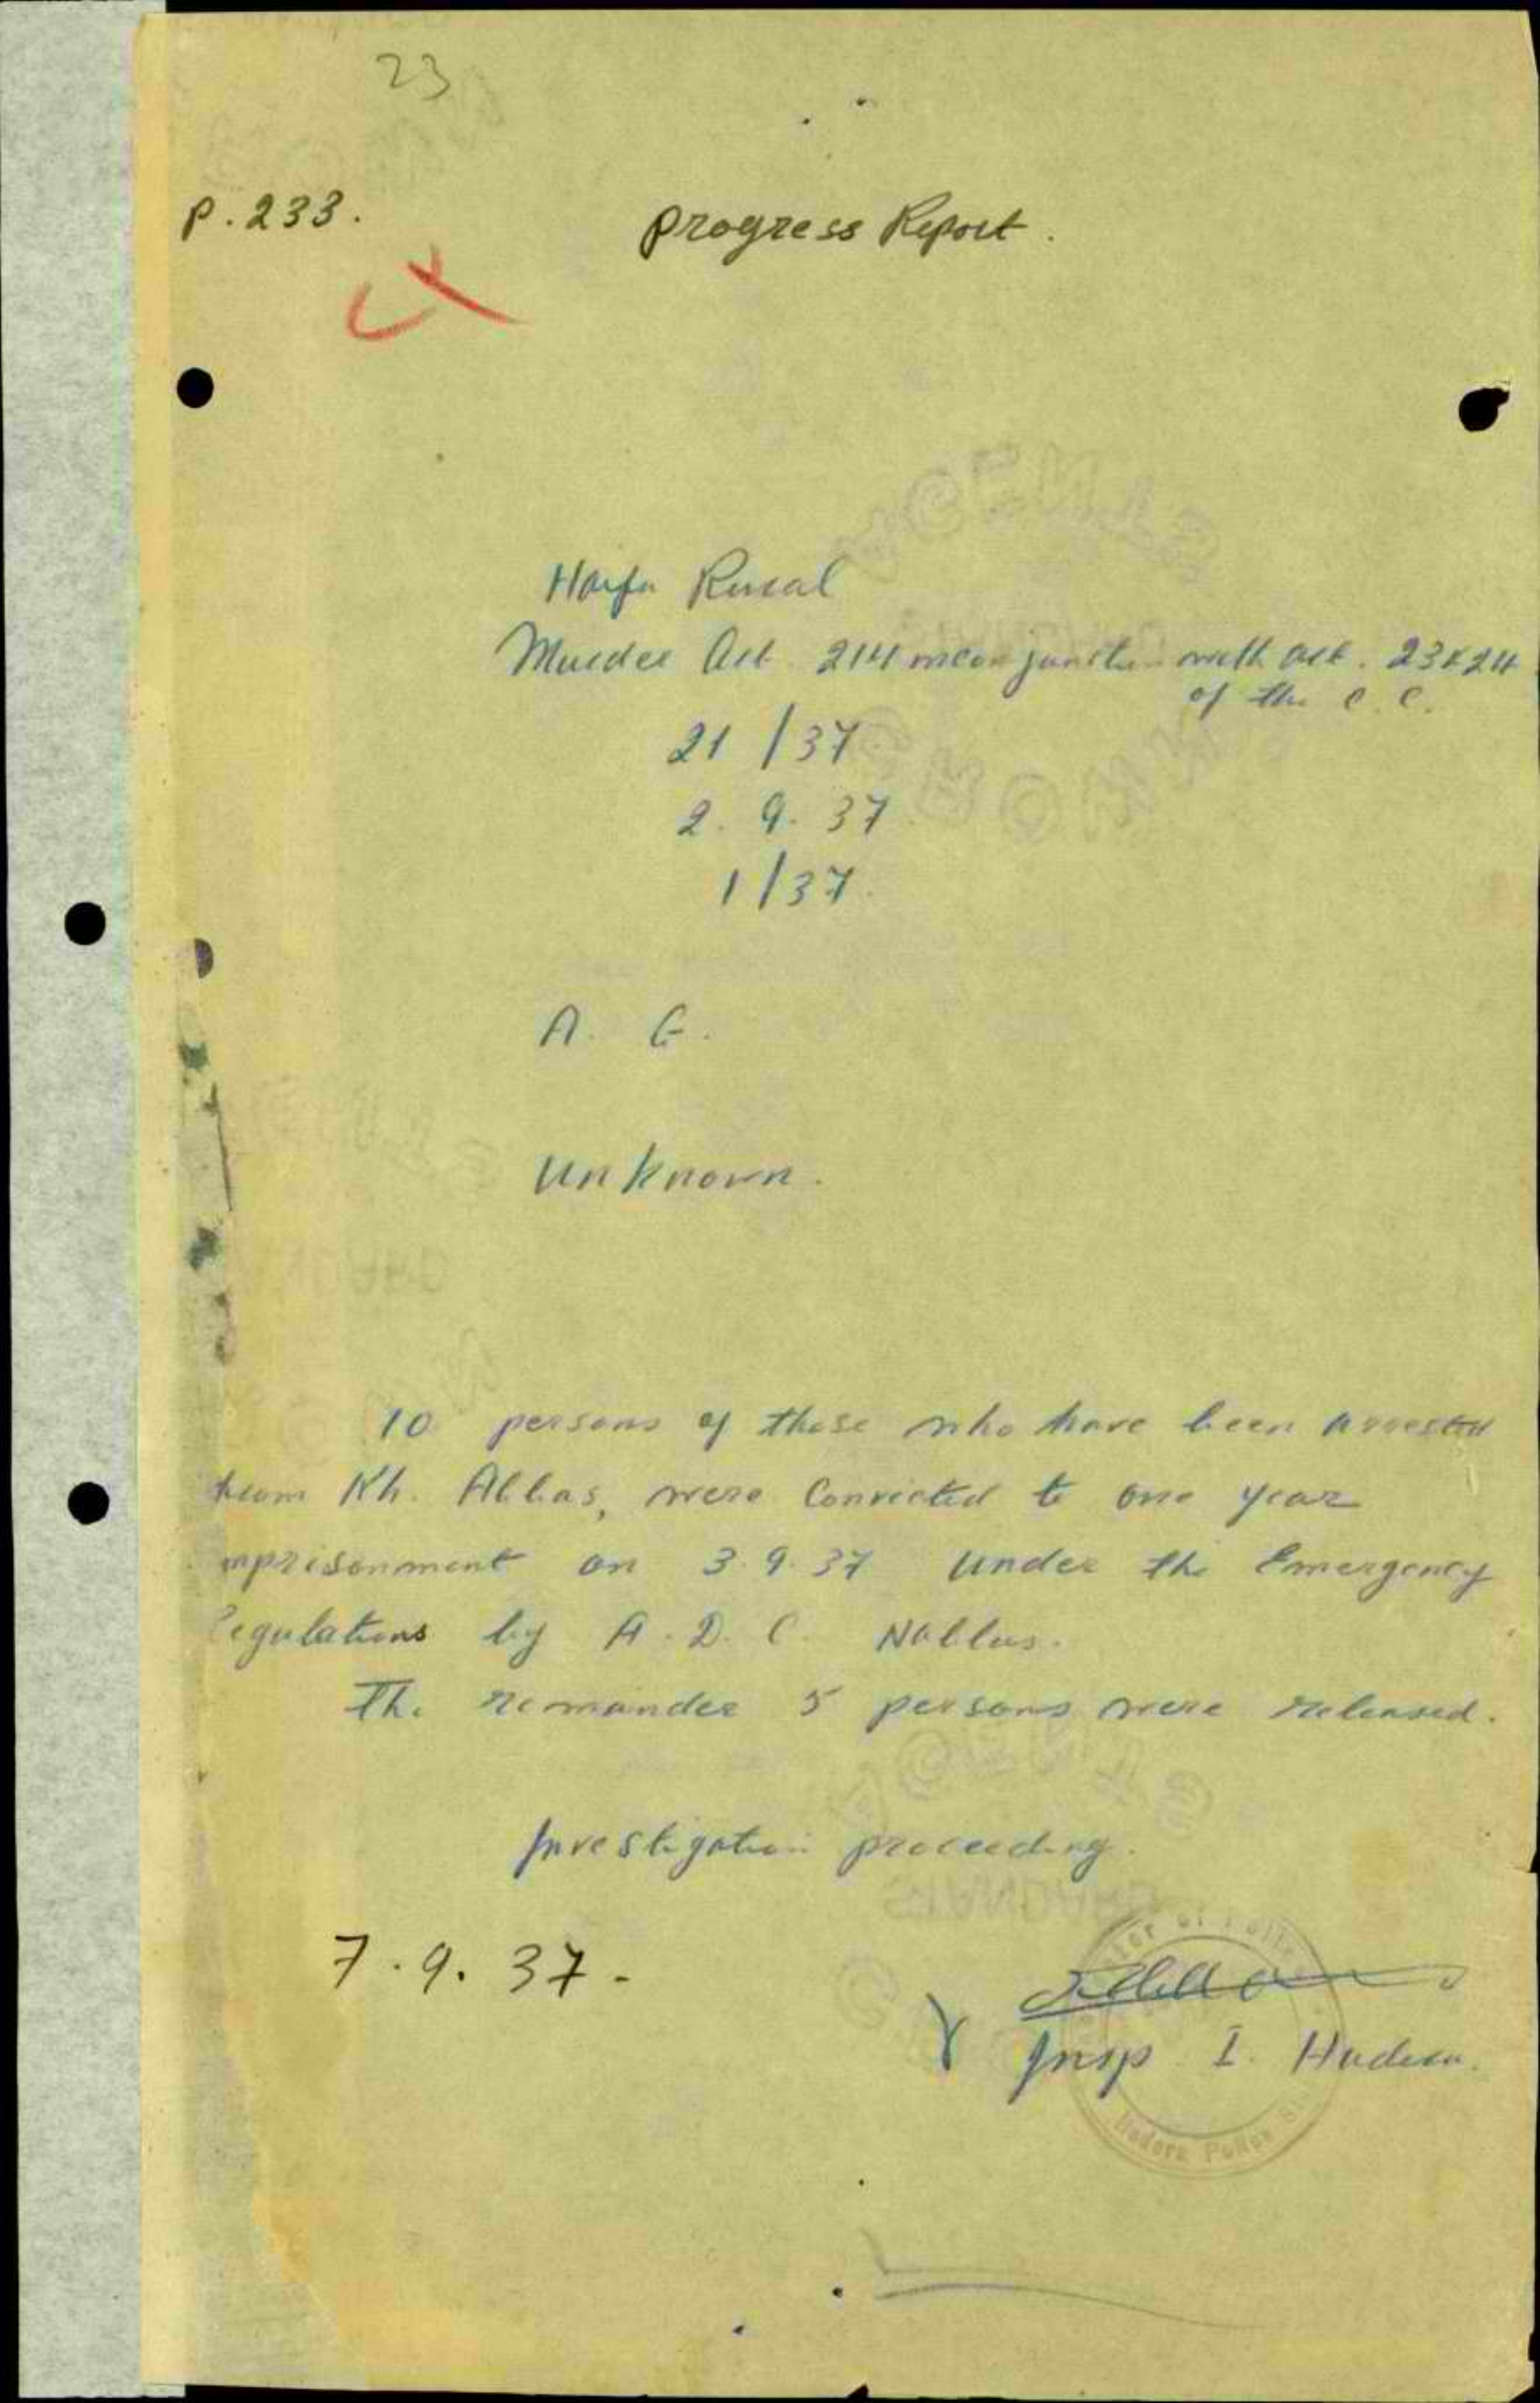 23
p. 233.
Progress Report.
Haifa Rural
Murder Art. 214 in conjunction with art. 23 & 24
of the C. C.
21 / 37
2. 9. 37
1 / 37.
A. G.
Unknown.
10 persons of those who have been arrested
from Kh. Abbas, were Convicted to one year
imprisonment on 3.9.37 under the Emergency
Regulations by A. D. C. Nablus.
The remainder 5 persons were released.
Investigation proceeding.
7. 9. 37 -
Insp. I. Hadera.
of Police
Hadera Police